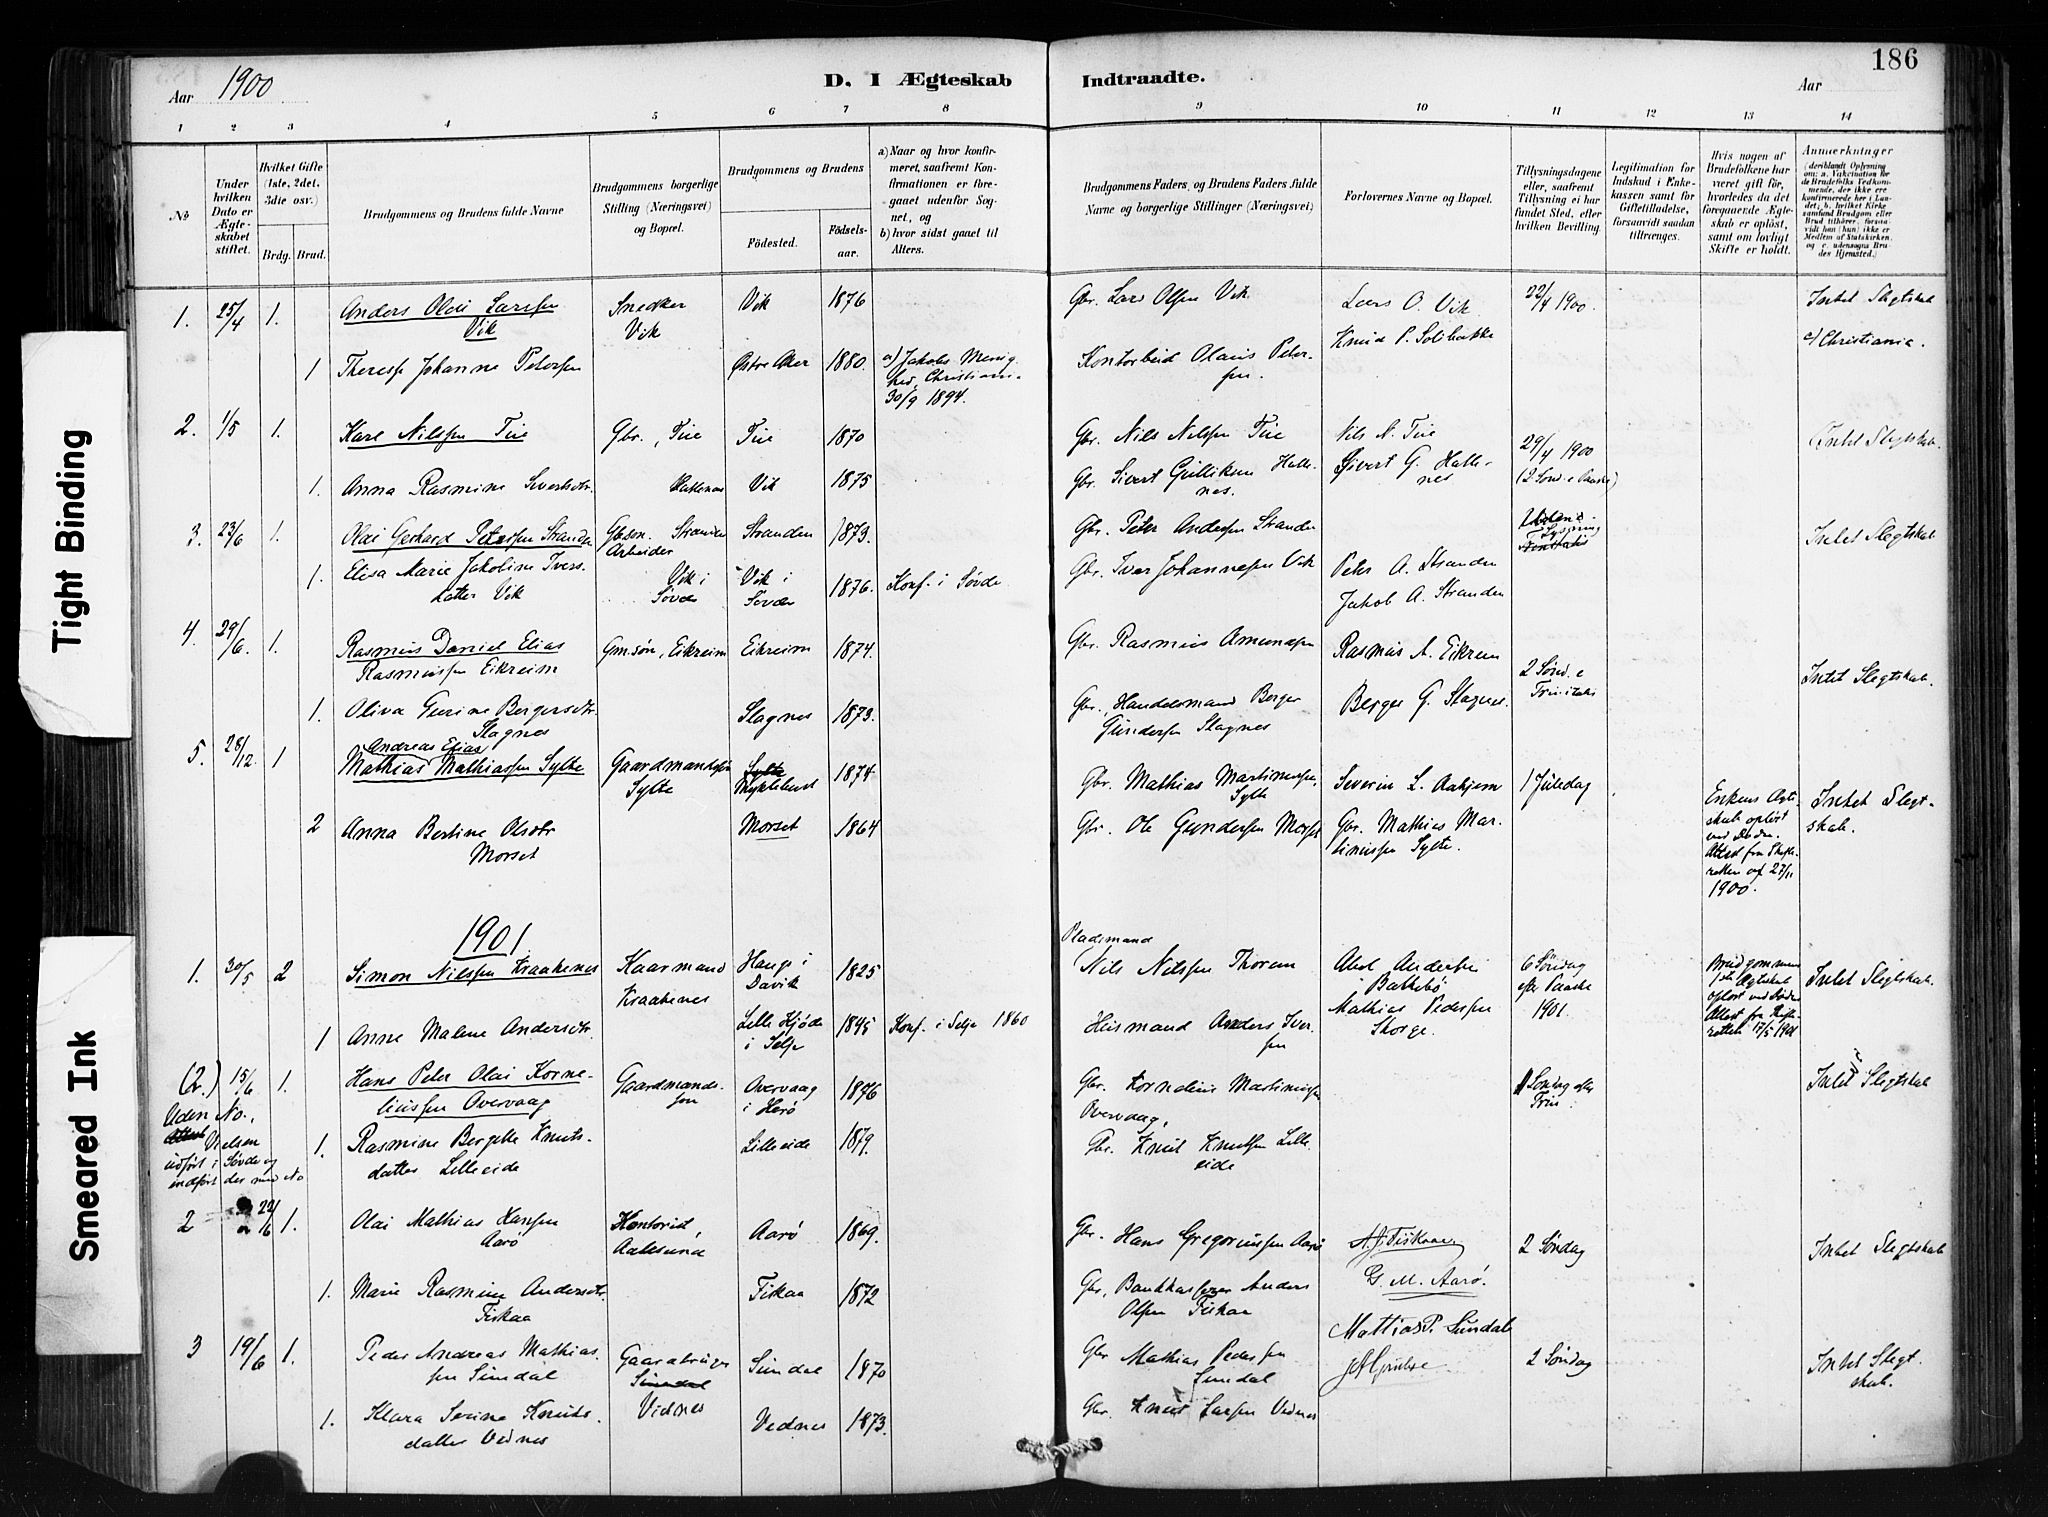 Tight Binding
Smeared Ink
186
Aar 1900
D. I Ægteskab Indtraadte.
Aar
1 2 3 4 5 6 7 8 9 10 11 12 13 14
№
Under hvilken Dato er Ægteskabet stiftet.
Hvilket Gifte (1ste, 2det, 3die osv.)
Brdg. Brud.
Brudgommens og Brudens fulde Navne
Brudgommens borgerlige Stilling (Næringsvei) og Bopæl.
Brudgommens og Brudens
Fødested. Fødselsaar.
a) Naar og hvor konfirmeret, saafremt Konfirmationen er foregaaet udenfor Sognet, og
b) hvor sidst gaaet til Alters.
Brudgommens Faders, og Brudens Faders fulde Navne og borgerlige Stillinger (Næringsvei)
Forlovernes Navne og Bopæl.
Tillysningsdagene eller, saafremt Tillysning ei har fundet Sted, efter hvilken Bevilling.
Legitimation for Indskud i Enkekassen samt for Giftetilladelse, forsaavidt saadan tiltrænges.
Hvis nogen af Brudefolkene har været gift før, hvorledes da det foregaaende Ægteskab er opløst, samt om lovligt Skifte er holdt.
Anmærkninger
1. 25/4 1. Anders Olai Larssen Vik Snedker Vik Vik 1876 Gbr. Lars Olsen Vik Lars O. Vik 22/4 1900. Intet Slegtskab
Knud P. Solibakke
a/ Christiania.
1 Therese Johanne Petersen Østre Aker 1880. a) Jakobs Menighed, Christiani. 30/9 1894. Kontorbud Olaus Petersen.
2. 1/5 1. Karl Nilssen Tue Gbr., Tue Tue 1870 Gbr. Nils Nilssen Tue Nils N. Tue 29/4 1900 Intet Slegtskab.
1. Anna Rasmine Sivertsdtr. Hallenes Vik 1875 Gbr. Sivert Gulliksen Hallenes. Sivert G. Hallenes (2 Sønd. e Paaske)
3. 23/6 1. Olai Gerhard Peterssen Stranden Gbsøn. Stranden Arbeider Stranden 1873. Gbr. Peter Anderssen Stranden Intet Slegtskab
1. Elisa Marie Jakoline Iversdatter Vik Vik i Søvde Vik i Søvde 1876. Konf. i Søvde Gbr. Iver Johannessen Vik Peter A. Stranden
Jakob A. Stranden
4. 29/6. 1. Rasmus Daniel Elias Rasmussen Eikreim Gm.søn, Eikreim Eikreim 1874. Gbr. Rasmus Amundsen Rasmus A. Eikrem 2 Sønd. e Trinitatis Intet Slegtskab.
1. Oliva Gurine Bergersdtr. Slagnes Slagnes 1873. Gbr., Handelsmand Berger Gundersen Slagnes Berger G. Slagnes.
5. 28/12. 1 Andreas Elias
Mathias Mathiassen Sylte Gaardmandssøn Sylte Sylte Myklebust 1874 Gbr. Mathias Martinussen Sylte Severin L. Aahjem 1 Juledag Intet Slegtskab.
2 Anna Bertine Olsdtr Morset Morset 1864 Gbr. Ole Gundersen Morset Gbr. Mathias Martinussen Sylte.
Enkens Ægteskab opløst ved Døden. Attest fra Skifteretten af 27/11 1900.
1901
1. 30/5 2 Simon Nilssen Kraakenes Kaarmand Kraakenes Hauge i Davik 1825 Pladsmand Nils Nilssen Thorem 6 Søndag efter Paaske 1901. Intet Slegtskab.
Mathias Pederssen Skorge.
1 Anne Malene Andersdtr. Lille Hjøde i Selje 1845 Konf. i Selje 1860 Husmand Anders Iversen
Attest fra Skifteretten 17/5 1901
(2.) 15/6 1. Hans Peter Olai Korneliussen Overvaag Gaardmandssøn Overvaag i Herø 1876 Gbr. Kornelius Martinussen Overvaag, 1 Søndag efter Trin. Intet Slegtskab
Uden No., Vielsen udført i Søvde og indført der med No
1. Rasmine Bergette Knutsdatter Lilleeide Lilleeide 1879. Gbr. Knut Knutsen Lilleeide
2 22/6 1. Olai Mathias Hanssen Aarø Kontorist, Aalesund Aarø 1869. Gbr. Hans Gregoriussen Aarø A. O. Fiskaa 2 Søndag Intet Slegtskab
G. M. Aarø.
1. Marie Rasmine Andersdtr. Fiskaa Fiskaa 1872 Gbr., Bankkasserer Anders Olsen Fiskaa
3 19/6 1. Peder Andreas Mathiassen Sundal Gaardbruger Sundal Vidnes Sundal 1870 Gbr Mathias Pederssen Sundal Mattias P. Sundal 2 Søndag Intet Slegtskab.
1. Klara Serine Knutsdatter Vednes Vednes 1873. Gbr. Knut Larssen Vednes